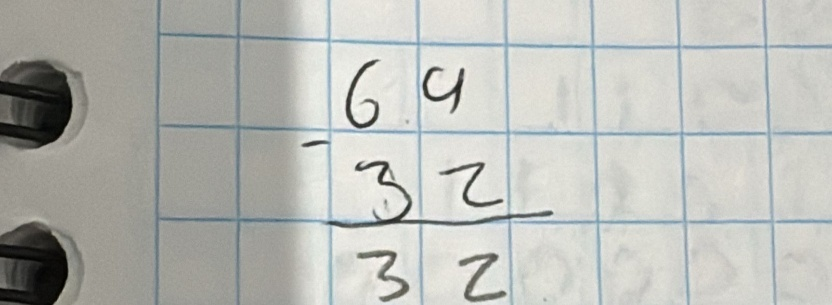 64
-
32
32